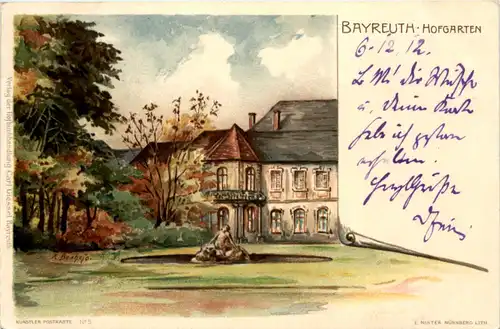 BAYREUTH - HOFGARTEN
6-12.12.
L. M! die Wäsche
u. deine Karte
habe ich gestern
erhalten.
Herzl. Grüße
Verlag der Hofbuchhandlung Carl Giessel Bayreuth
KÜNSTLER POSTKARTE No 5
E. NISTER NÜRNBERG LITH.